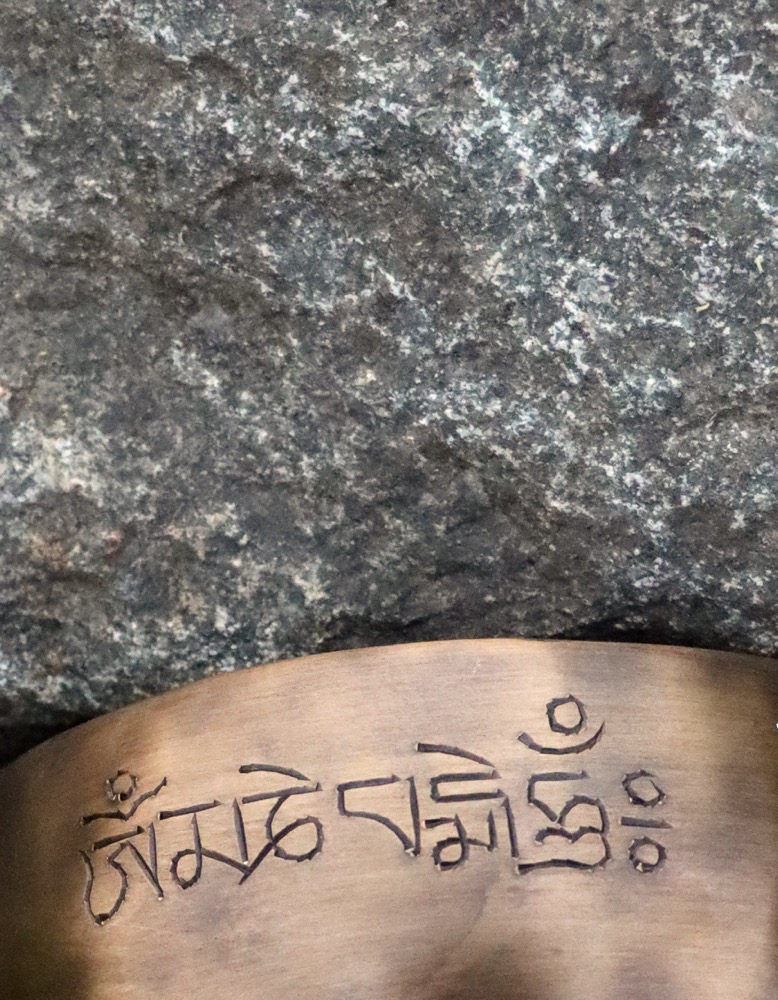 ༀམཎིཔདྨེཧཱུྃ༔